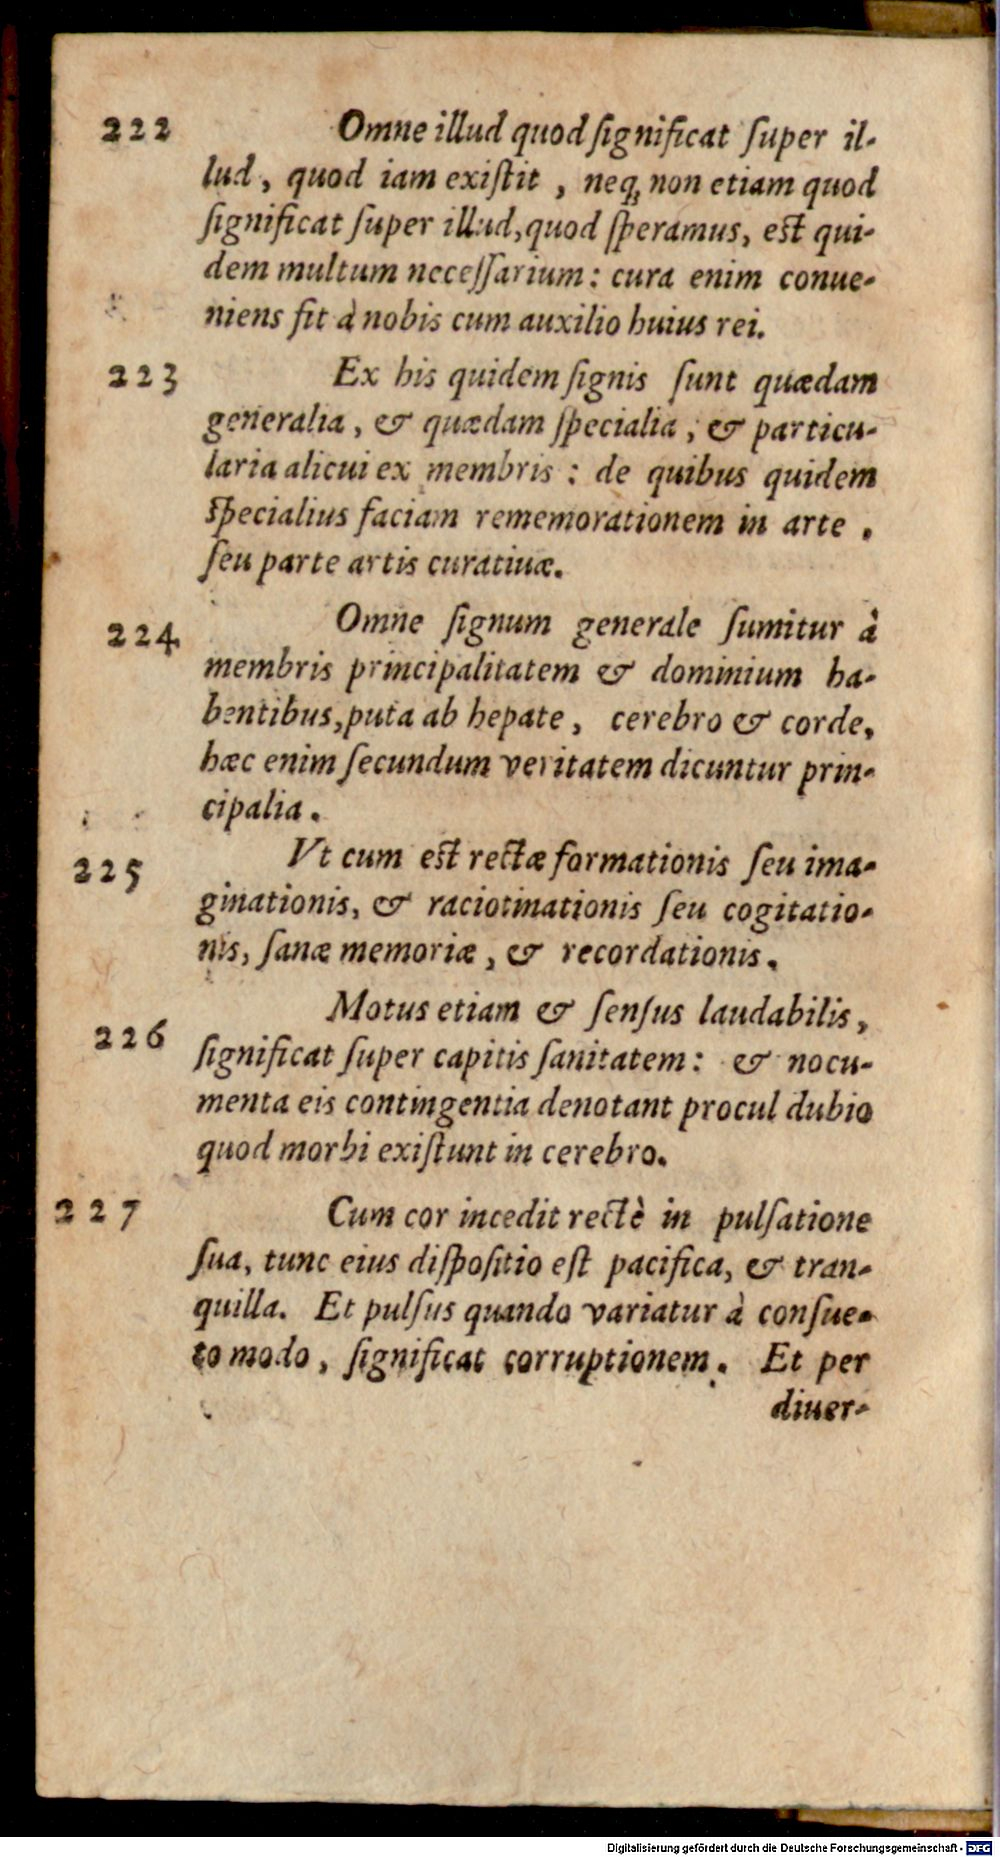 222 Omne illud quod ſignificat ſuper il-
lud, quod iam exiſtit, neq; non etiam quod
ſignificat ſuper illud, quod ſperamus, eſt qui-
dem multum neceſſarium: cura enim conue-
niens fit à nobis cum auxilio huius rei.
223 Ex his quidem ſignis ſunt quædam
generalia, & quædam ſpecialia, & particu-
laria alicui ex membris: de quibus quidem
ſpecialius faciam rememorationem in arte,
ſeu parte artis curatiuæ.
224 Omne ſignum generale ſumitur à
membris principalitatem & dominium ha-
bentibus, puta ab hepate, cerebro & corde,
hæc enim ſecundum veritatem dicuntur prin-
cipalia.
225 Vt cum eſt rectæ formationis ſeu ima-
ginationis, & raciotinationis ſeu cogitatio-
nis, ſanæ memoriæ, & recordationis.
226 Motus etiam & ſenſus laudabilis,
ſignificat ſuper capitis ſanitatem: & nocu-
menta eis contingentia denotant procul dubio
quod morbi exiſtunt in cerebro.
227 Cum cor incedit rectè in pulſatione
ſua, tunc eius diſpoſitio eſt pacifica, & tran-
quilla. Et pulſus quando variatur à conſue-
to modo, ſignificat corruptionem. Et per
diuer-
Digitalisierung gefördert durch die Deutsche Forschungsgemeinschaft - DFG